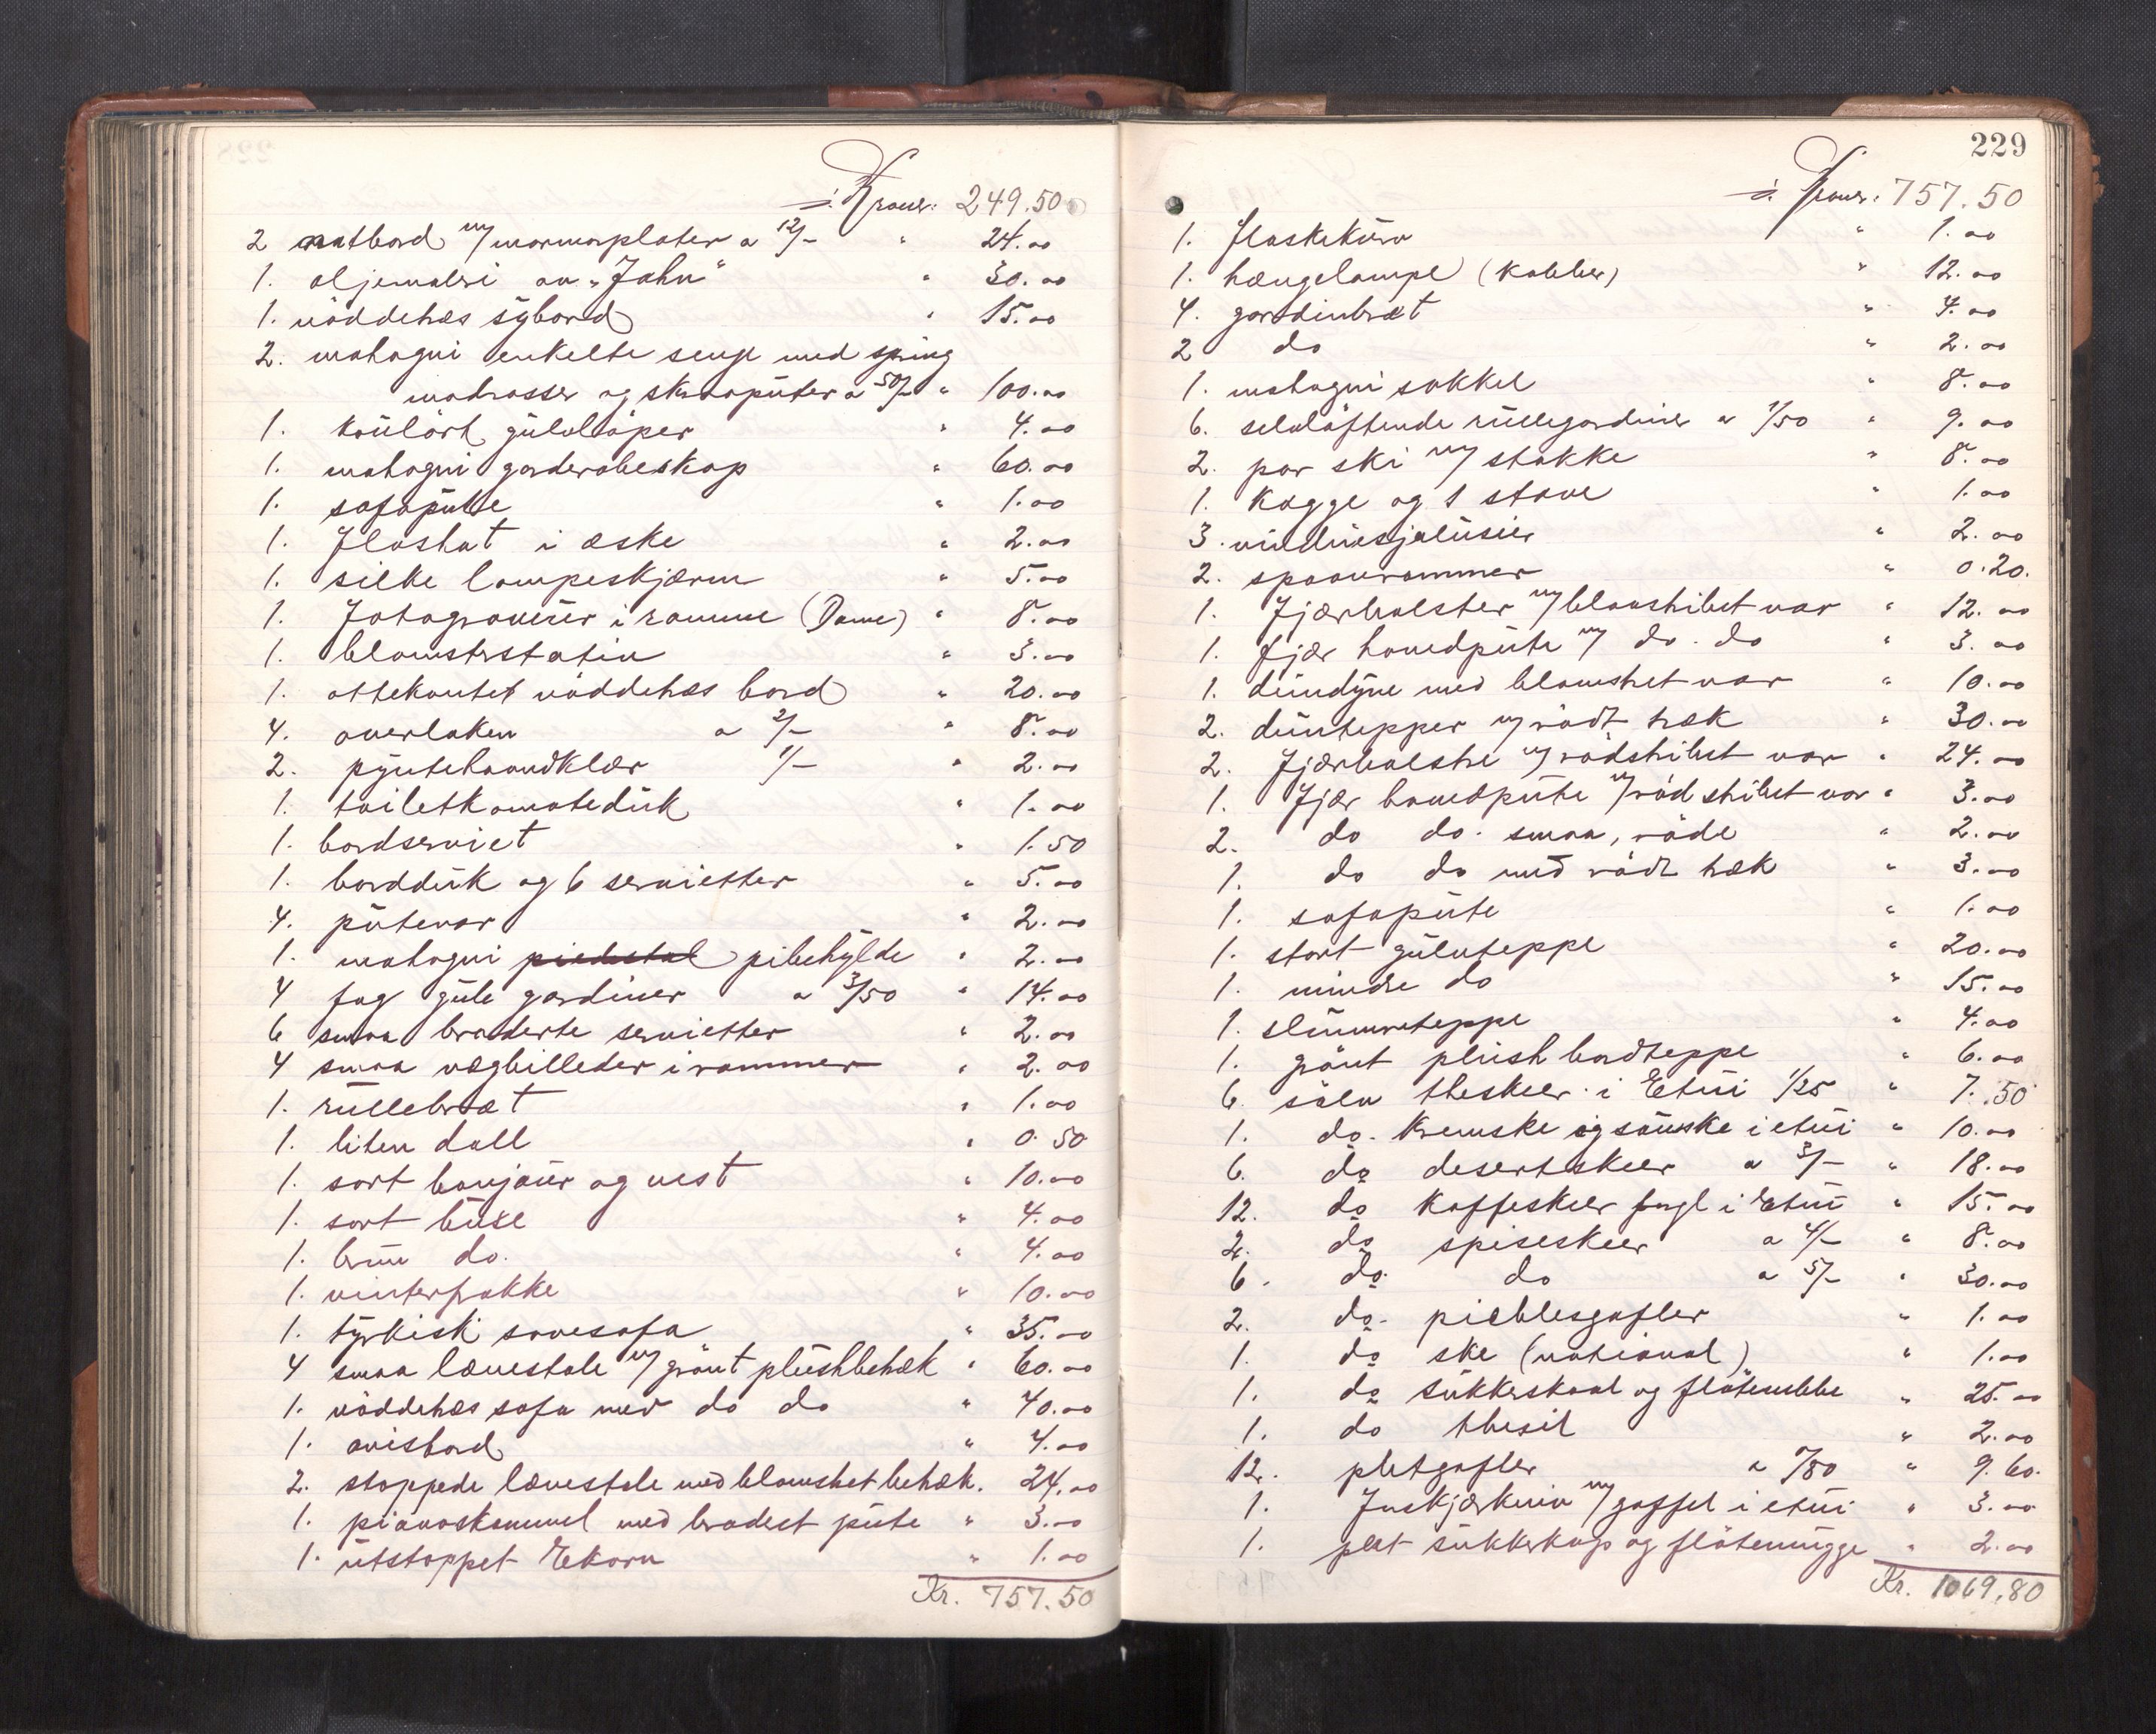 ÷ Kroner: 249.50
2 natbord m/ marmorplater a 12/- " 24.00
1. oljemaleri av "Jahn" " 30.00
1. nöddetræs sybord " 15.00
2. mahogni enkelte senge med spring
madrasser og skraaputer a 50/- " 100.00
1. kulört gulvlöper " 4.00
1. mahogni garderobeskap " 60.00
1. sofapute " 1.00
1. Floshat i æske " 2.00
1. silke lampeskjærm " 5.00
1. Fotogravure i ramme (Dame) " 8.00
1. blomsterstativ " 3.00
1. ottekantet nöddetræs bord " 20.00
4. overlaken a 2/- " 8.00
2. pyntehaandklær 1/- " 2.00
1. toiletkomoteduk " 1.00
1. bordserviet " 1.50
1. bordduk og 6 servietter " 5.00
4. putevar " 2.00
1. mahogni piedestal pibehylde " 2.00
4 fag gule gardiner a 3/50 " 14.00
6 smaa broderte servietter " 2.00
4 smaa vægbilleder i rammer " 2.00
1. rullebræt " 1.00
1. liten doll " 0.50
1. sort bonjour og vest " 10.00
1. sort buxe " 4.00
1. brun do. " 4.00
1. vinterfrakke " 10.00
1. tyrkisk sovesofa " 35.00
4 smaa lænestole m/ grönt plüshbetræk " 60.00
1. nöddetræs sofa med do do " 40.00
1. avisbord " 4.00
2. stoppede lænestole med blomstret betræk. 24.00
1. pianoskammel med brodert pute " 3.00
1. utstoppet Ekorn " 1.00
Kr. 757.50
229
÷ Kroner: 757.50
1. Flaskekurv " 1.00
1. hængelampe (kobber) " 12.00
4. gardinbræt " 4.00
2 do " 2.00
1. mahogni sokkel " 8.00
6. selvlöftende rullegardiner a 1/50 " 9.00
2. par ski m/ stokke " 8.00
1. kagge og 1 stave " 1.00
3. vinduesjalusier " 2.00
2. spaanrammer " 0.20.
1. Fjærbolster m/ blaastribet var " 12.00
1. fjær hovedpute m/ do. do " 3.00
1. dundyne med blomstret var " 10.00
2. duntepper m/ rödt træk " 30.00
2. Fjærbolstre m/ rödstribet var " 24.00
1. Fjær hovedpute m/ rödstribet var " 3.00
2. do do. smaa, röde " 2.00
1. do do med rödt træk " 3.00
1. sofapute " 1.00
1. stort gulvteppe " 20.00
1. mindre do " 15.00
1. slumreteppe " 4.00
1. grönt plüsh bordteppe " 6.00
6. sölv theskeer i Etui 1/25 " 7.50
1. do. kremske og sauske i etui " 10.00
6. do desertskeer a 3/- " 18.00
12. do kaffeskeer forgl i Etui " 15.00
2. do spiseskeer a 4/- " 8.00
6. do. do a 5/- " 30.00
2. do. picklesgafler " 1.00
1. do ske (national) " 1.00
1. do sukkerskaal og flötemugge " 25.00
1. do thesil " 2.00
12. pletgafler a 0/80 " 9.60.
1. Forskjærkniv m/ gaffel i etui " 3.00
1. plet sukkerkop og flötemugge " 2.00
Kr. 1069,80